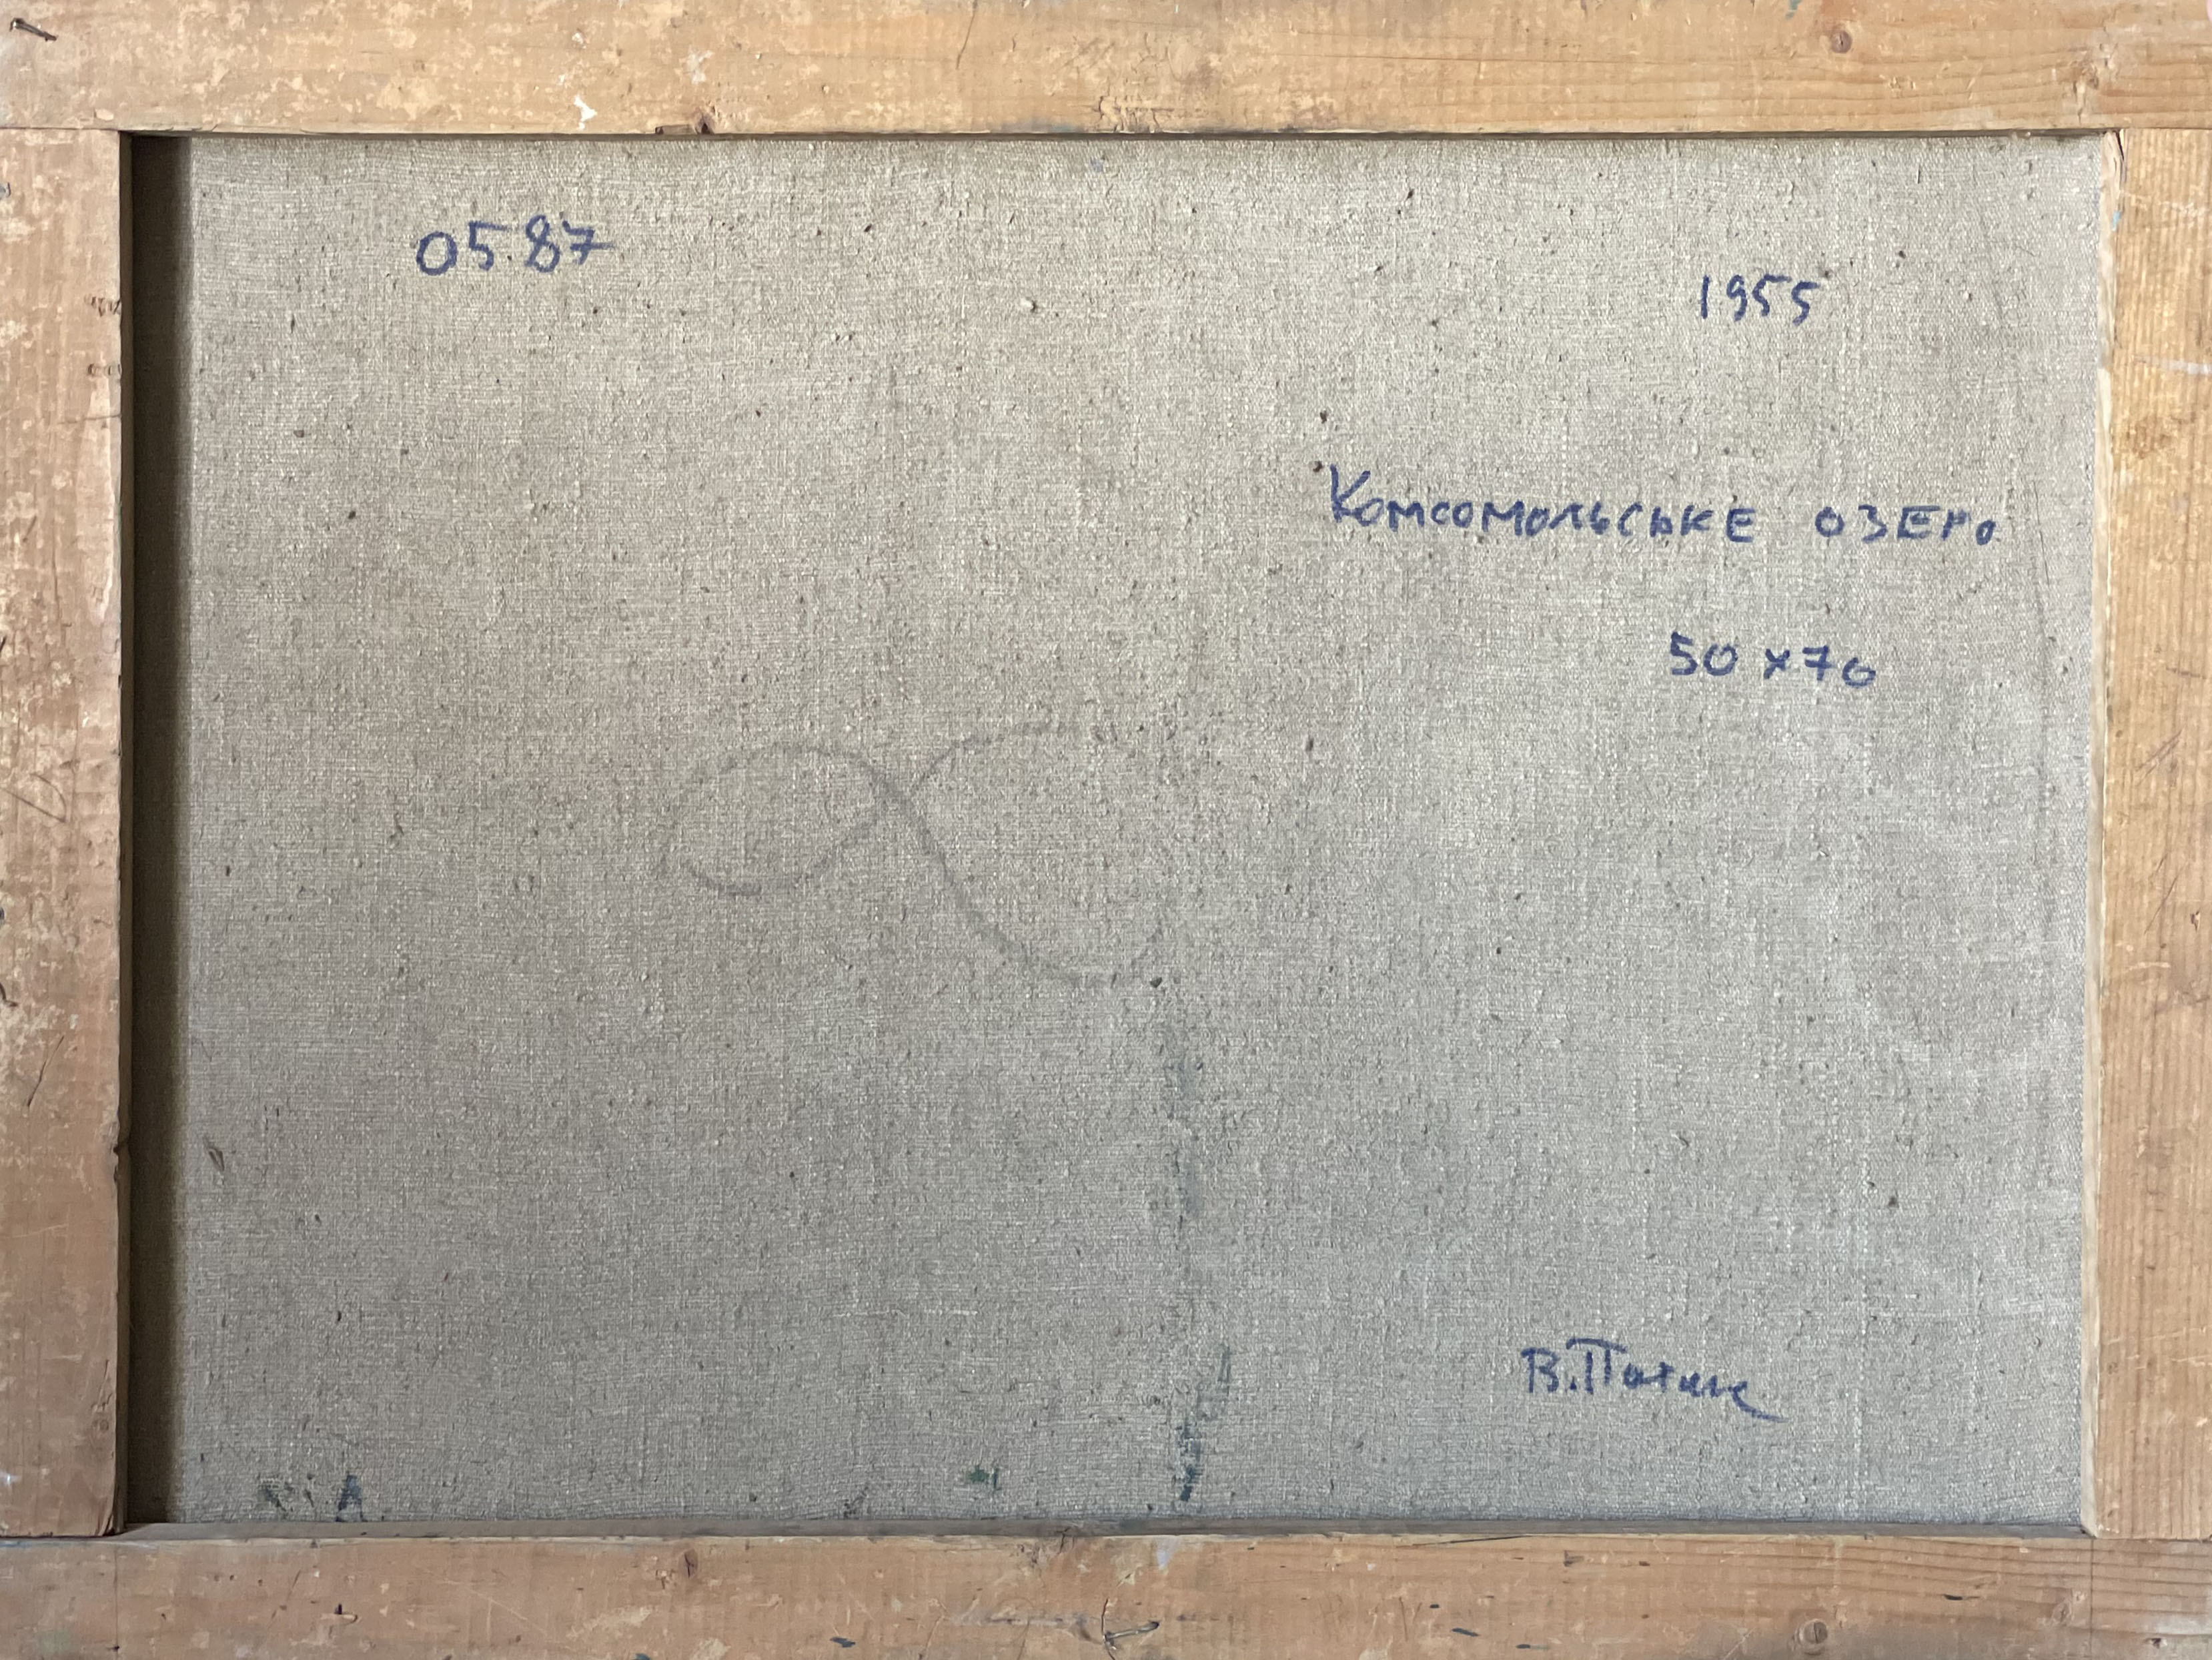 0587
1955
Комсомольське озеро
50 x 70
В.